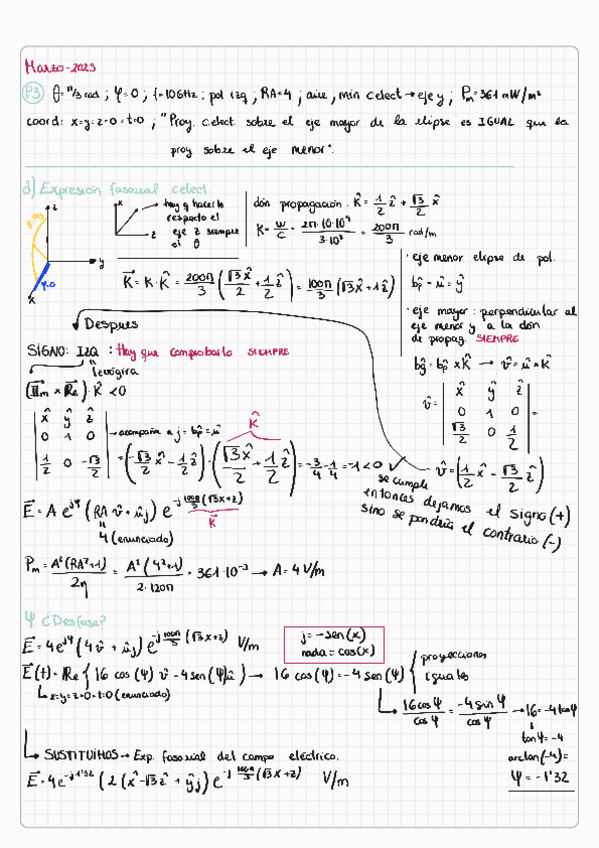 Marzo-2023
P3 θ=π/3 rad ; φ=0 ; f=10GHz ; pol izq ; RA=4 ; aire ; min celect → eje y ; Pm=361 mW/m²
coord: x=y=z=0=t=0 ; "Proy. celect. sobre el eje mayor de la elipse es IGUAL que la
proy sobre el eje menor".
d) Expresión fasorial celect.
z
y
x
φ=0
x
z
hay q hacerlo
respecto el
eje z siempre
el θ
dón propagación. k̂ = 1/2 ẑ + √3/2 x̂
K = w/c = 2π·10·10⁹/3·10⁸ = 200π/3 rad/m
K⃗ = K · k̂ = 200π/3 (√3 x̂/2 + 1/2 ẑ) = 100π/3 (√3x̂ + 1ẑ)
· eje menor elipse de pol.
bp̂ - û = ŷ
· eje mayor : perpendicular al
eje menor y a la dón
de propag. SIEMPRE
bĝ = bp̂ × K̂ → v̂ = û × K̂
v̂ = | x̂ ŷ ẑ |
| 0 1 0 | =
| √3/2 0 1/2 |
v̂ = (1/2 x̂ - √3/2 ẑ)
Después
SIGNO: IZQ : Hay que comprobarlo SIEMPRE
levógira
(Im × Re) · K̂ < 0
| x̂ ŷ ẑ |
| 0 1 0 | → acompaña a j = bp̂ = û
| 1/2 0 -√3/2 | = (-√3/2 x̂ - 1/2 ẑ) · (√3 x̂/2 + 1/2 ẑ) = -3/4 - 1/4 = -1 < 0 ✓
K̂
se cumple
entonces dejamos el signo (+)
sino se pondría el contrario (-)
E⃗ = A e^jφ (RA v̂ + û j) e^-j 100π/3 (√3x+z)
K⃗
4 (enunciado)
Pm = A²(RA²+1)/2η = A²(4²+1)/2·120π = 361·10⁻³ → A = 4 V/m
Ψ ¿Desfase?
E⃗ = 4e^jφ (4 v̂ + û j) e^-j 100π/3 (√3 x+z) V/m
j = -sen(x)
nada = cos(x)
E⃗(t) = Re { 16 cos(Ψ) v̂ - 4 sen(Ψ) û } → 16 cos(Ψ) = -4 sen(Ψ) { proyecciones
iguales
x=y=z=0=t=0 (enunciado)
16 cosΨ/cosΨ = -4 sinΨ/cosΨ → 16 = -4 tanΨ
tanΨ = -4
arctan(-4) =
Ψ = -1'32
SUSTITUÍMOS → Exp. fasorial del campo eléctrico.
E⃗ = 4e^-j1'32 (2(x̂ - √3 ẑ + ŷj) e^-j 100π/3 (√3 x+z) V/m